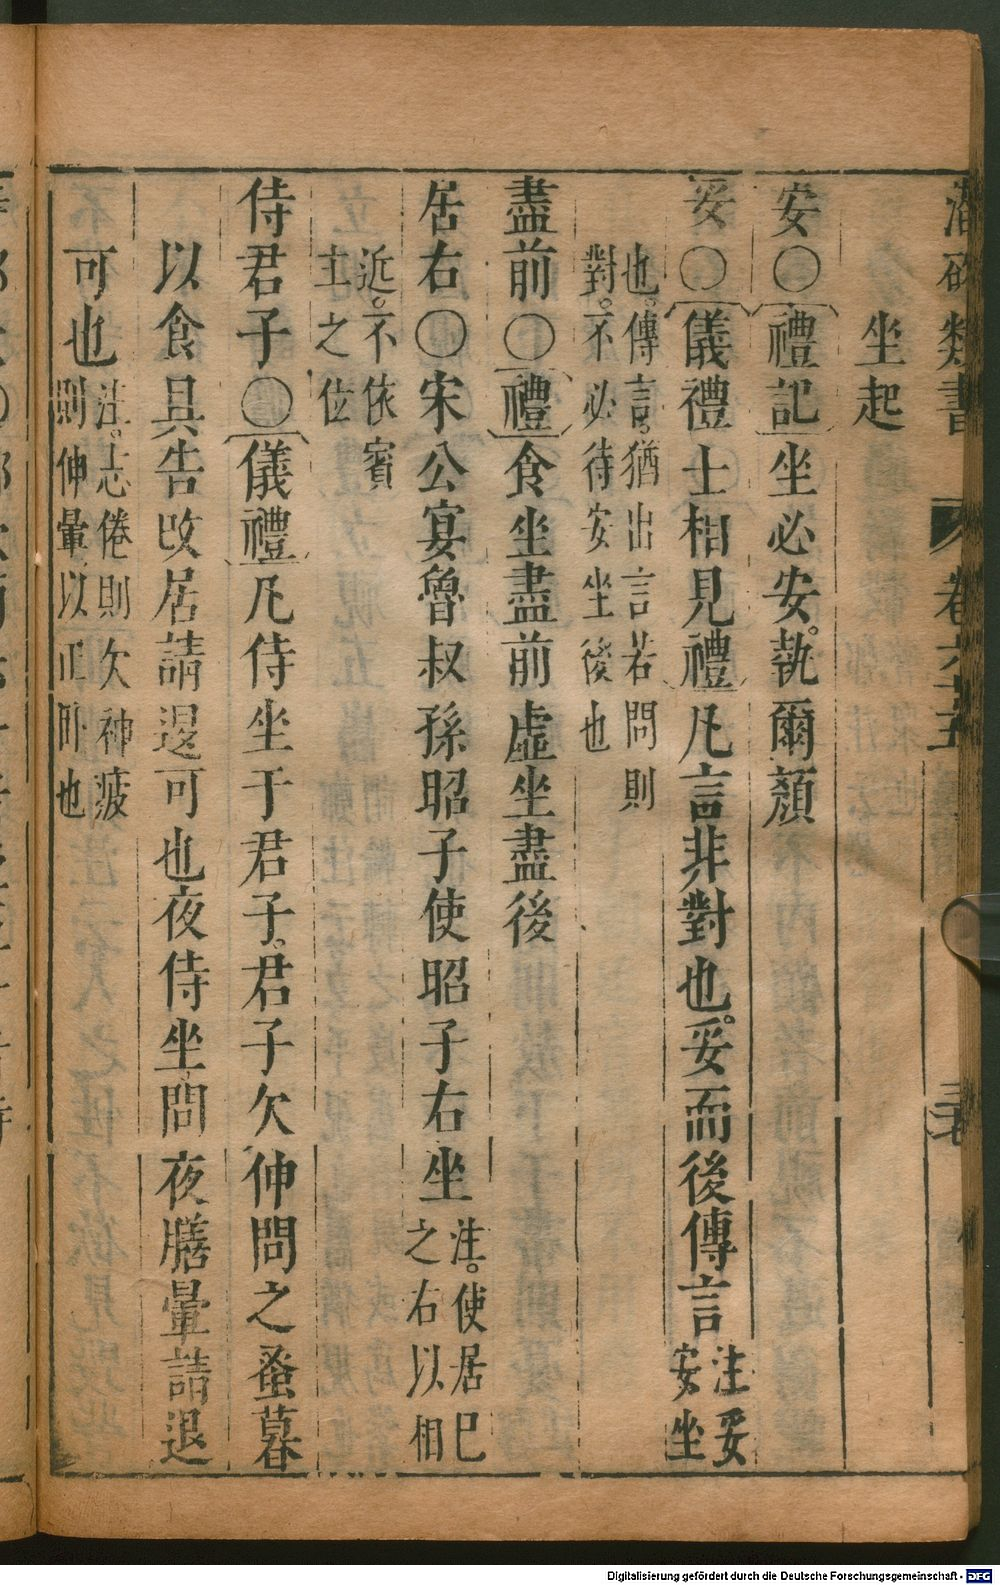 潛確類書 卷六十五
坐起
安〇禮記坐必安。執爾顏
妥〇儀禮士相見禮凡言非對也。妥而後傳言注妥安坐
也。傳言。猶出言若問則對。不必待安坐後也
盡前〇禮食坐盡前虛坐盡後
居右〇宋公宴魯叔孫昭子使昭子右坐注。使居巳之右以相
近。不依賓主之位
侍君子〇儀禮凡侍坐于君子。君子欠伸問之蚤暮
以食具告改居請退可也夜侍坐問夜膳葷請退
可也注。志倦則欠神疲則伸葷以止卧也
Digitalisierung gefördert durch die Deutsche Forschungsgemeinschaft - DFG